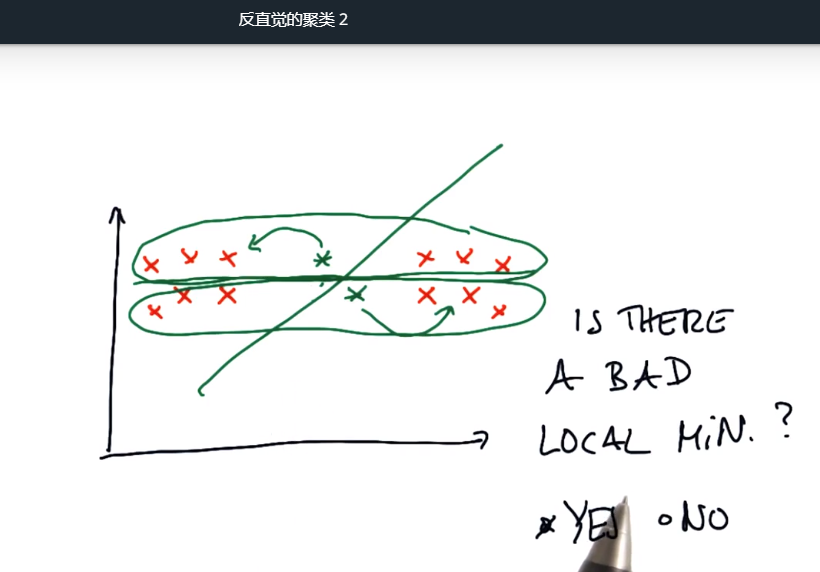 反直觉的聚类 2
IS THERE
A BAD
LOCAL MIN. ?
YES NO